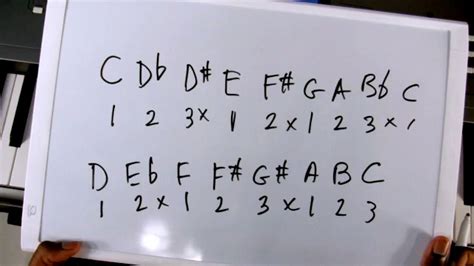 C Db D# E F# G A Bb C
1 2 3x 1 2x1 2 3x1
D Eb F F# G# A B C
1 2x1 2 3x1 2 3